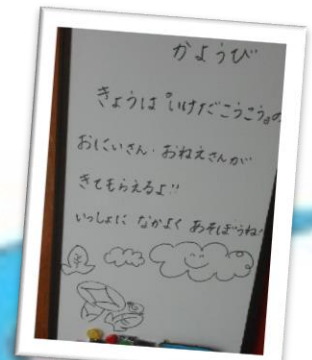 かようび
きょうは『いけだこうこう』の
おにいさん・おねえさんが
きてもらえるよ!!
いっしょに なかよく あそぼうね!